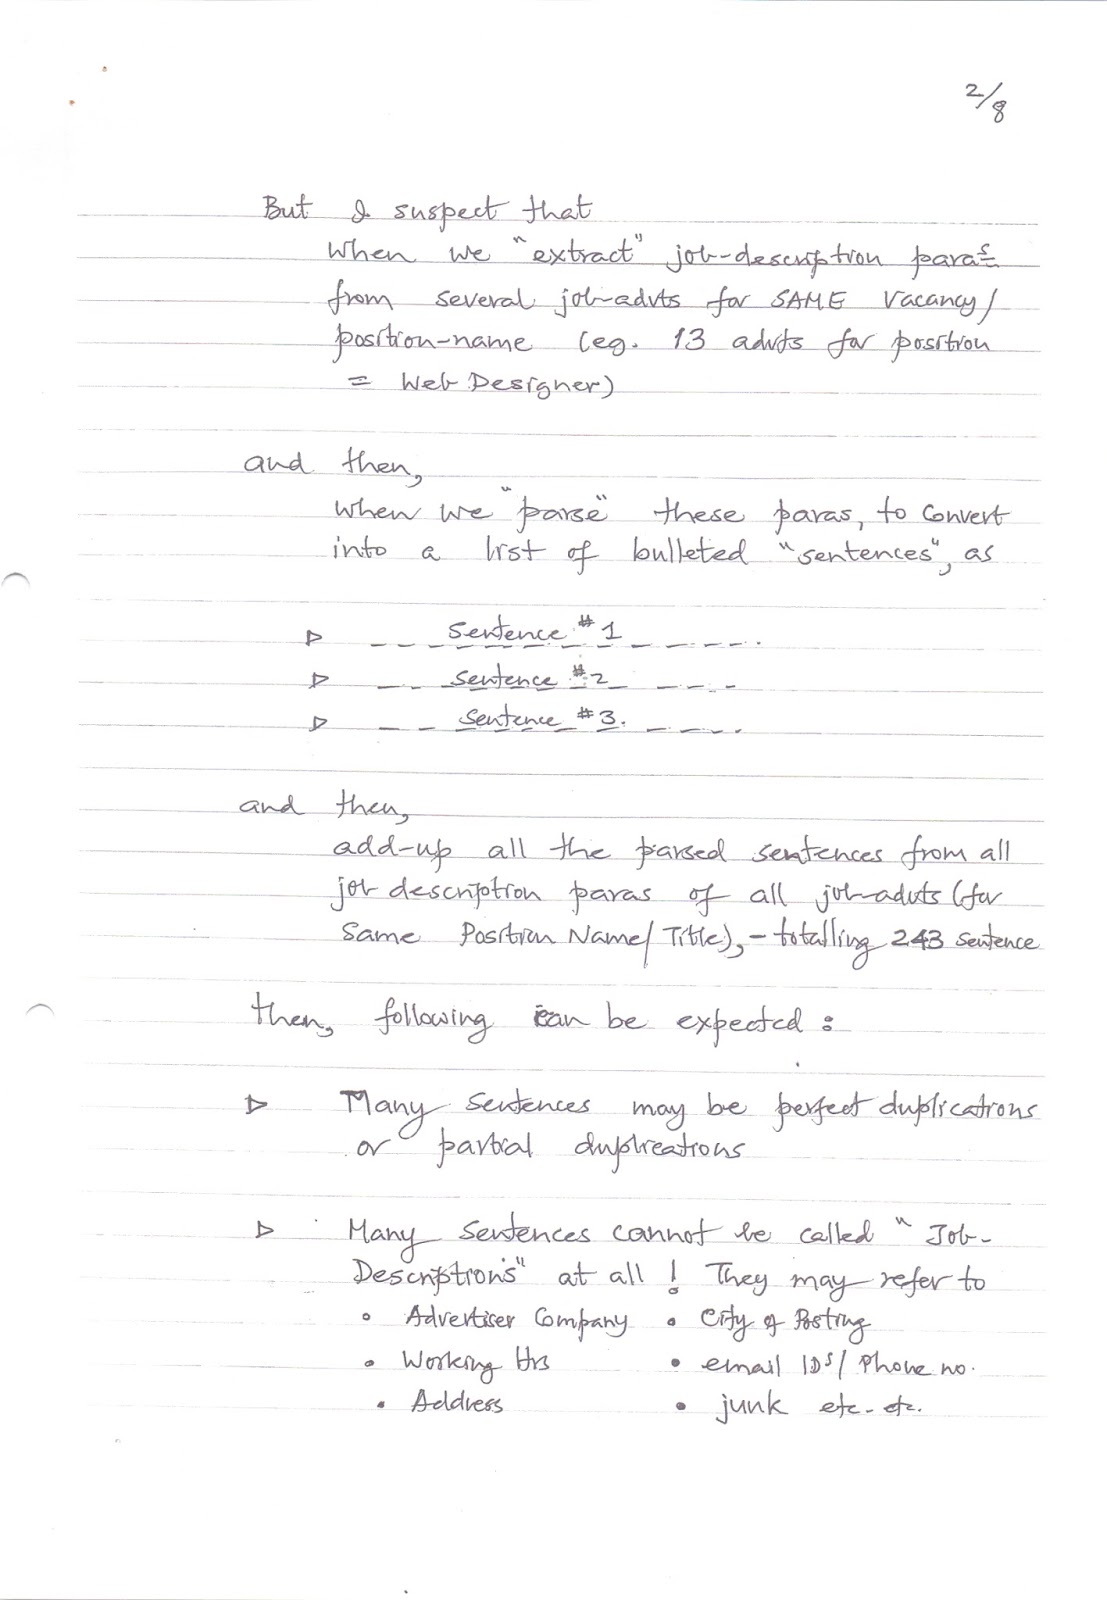 2/8
But I suspect that
When we "extract" job-description paras
from several job-advts for SAME Vacancy/
position-name (eg. 13 advts for position
= Web Designer)
and then,
when we "parse" these paras, to convert
into a list of bulleted "sentences", as
▷ _ _ sentence #1 _ _ _ _ .
▷ _ _ sentence #2 _ _ _ _
▷ _ _ sentence #3. _ _ _ _ .
and then,
add-up all the parsed sentences from all
job description paras of all job-advts (for
Same Position Name/Title), - totalling 243 sentence
then, following can be expected :
▷ Many sentences may be perfect duplications
or partial duplications
▷ Many sentences cannot be called "Job-
Descriptions" at all ! They may refer to
• Advertiser Company • City of Posting
• Working Hrs • email IDs/Phone no.
• Address • junk etc. etc.